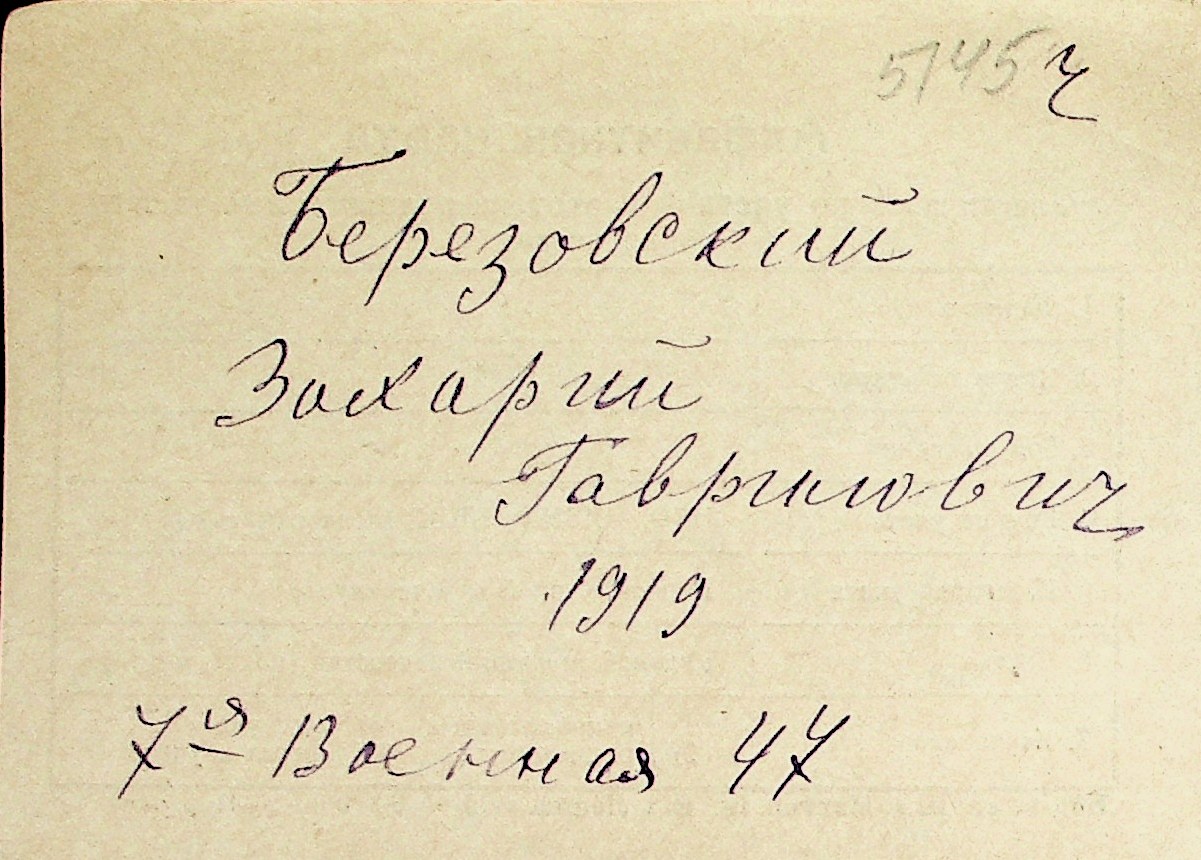 5145 ч
Березовский
Захарий
Гаврилович
1919
7ая Военная 47